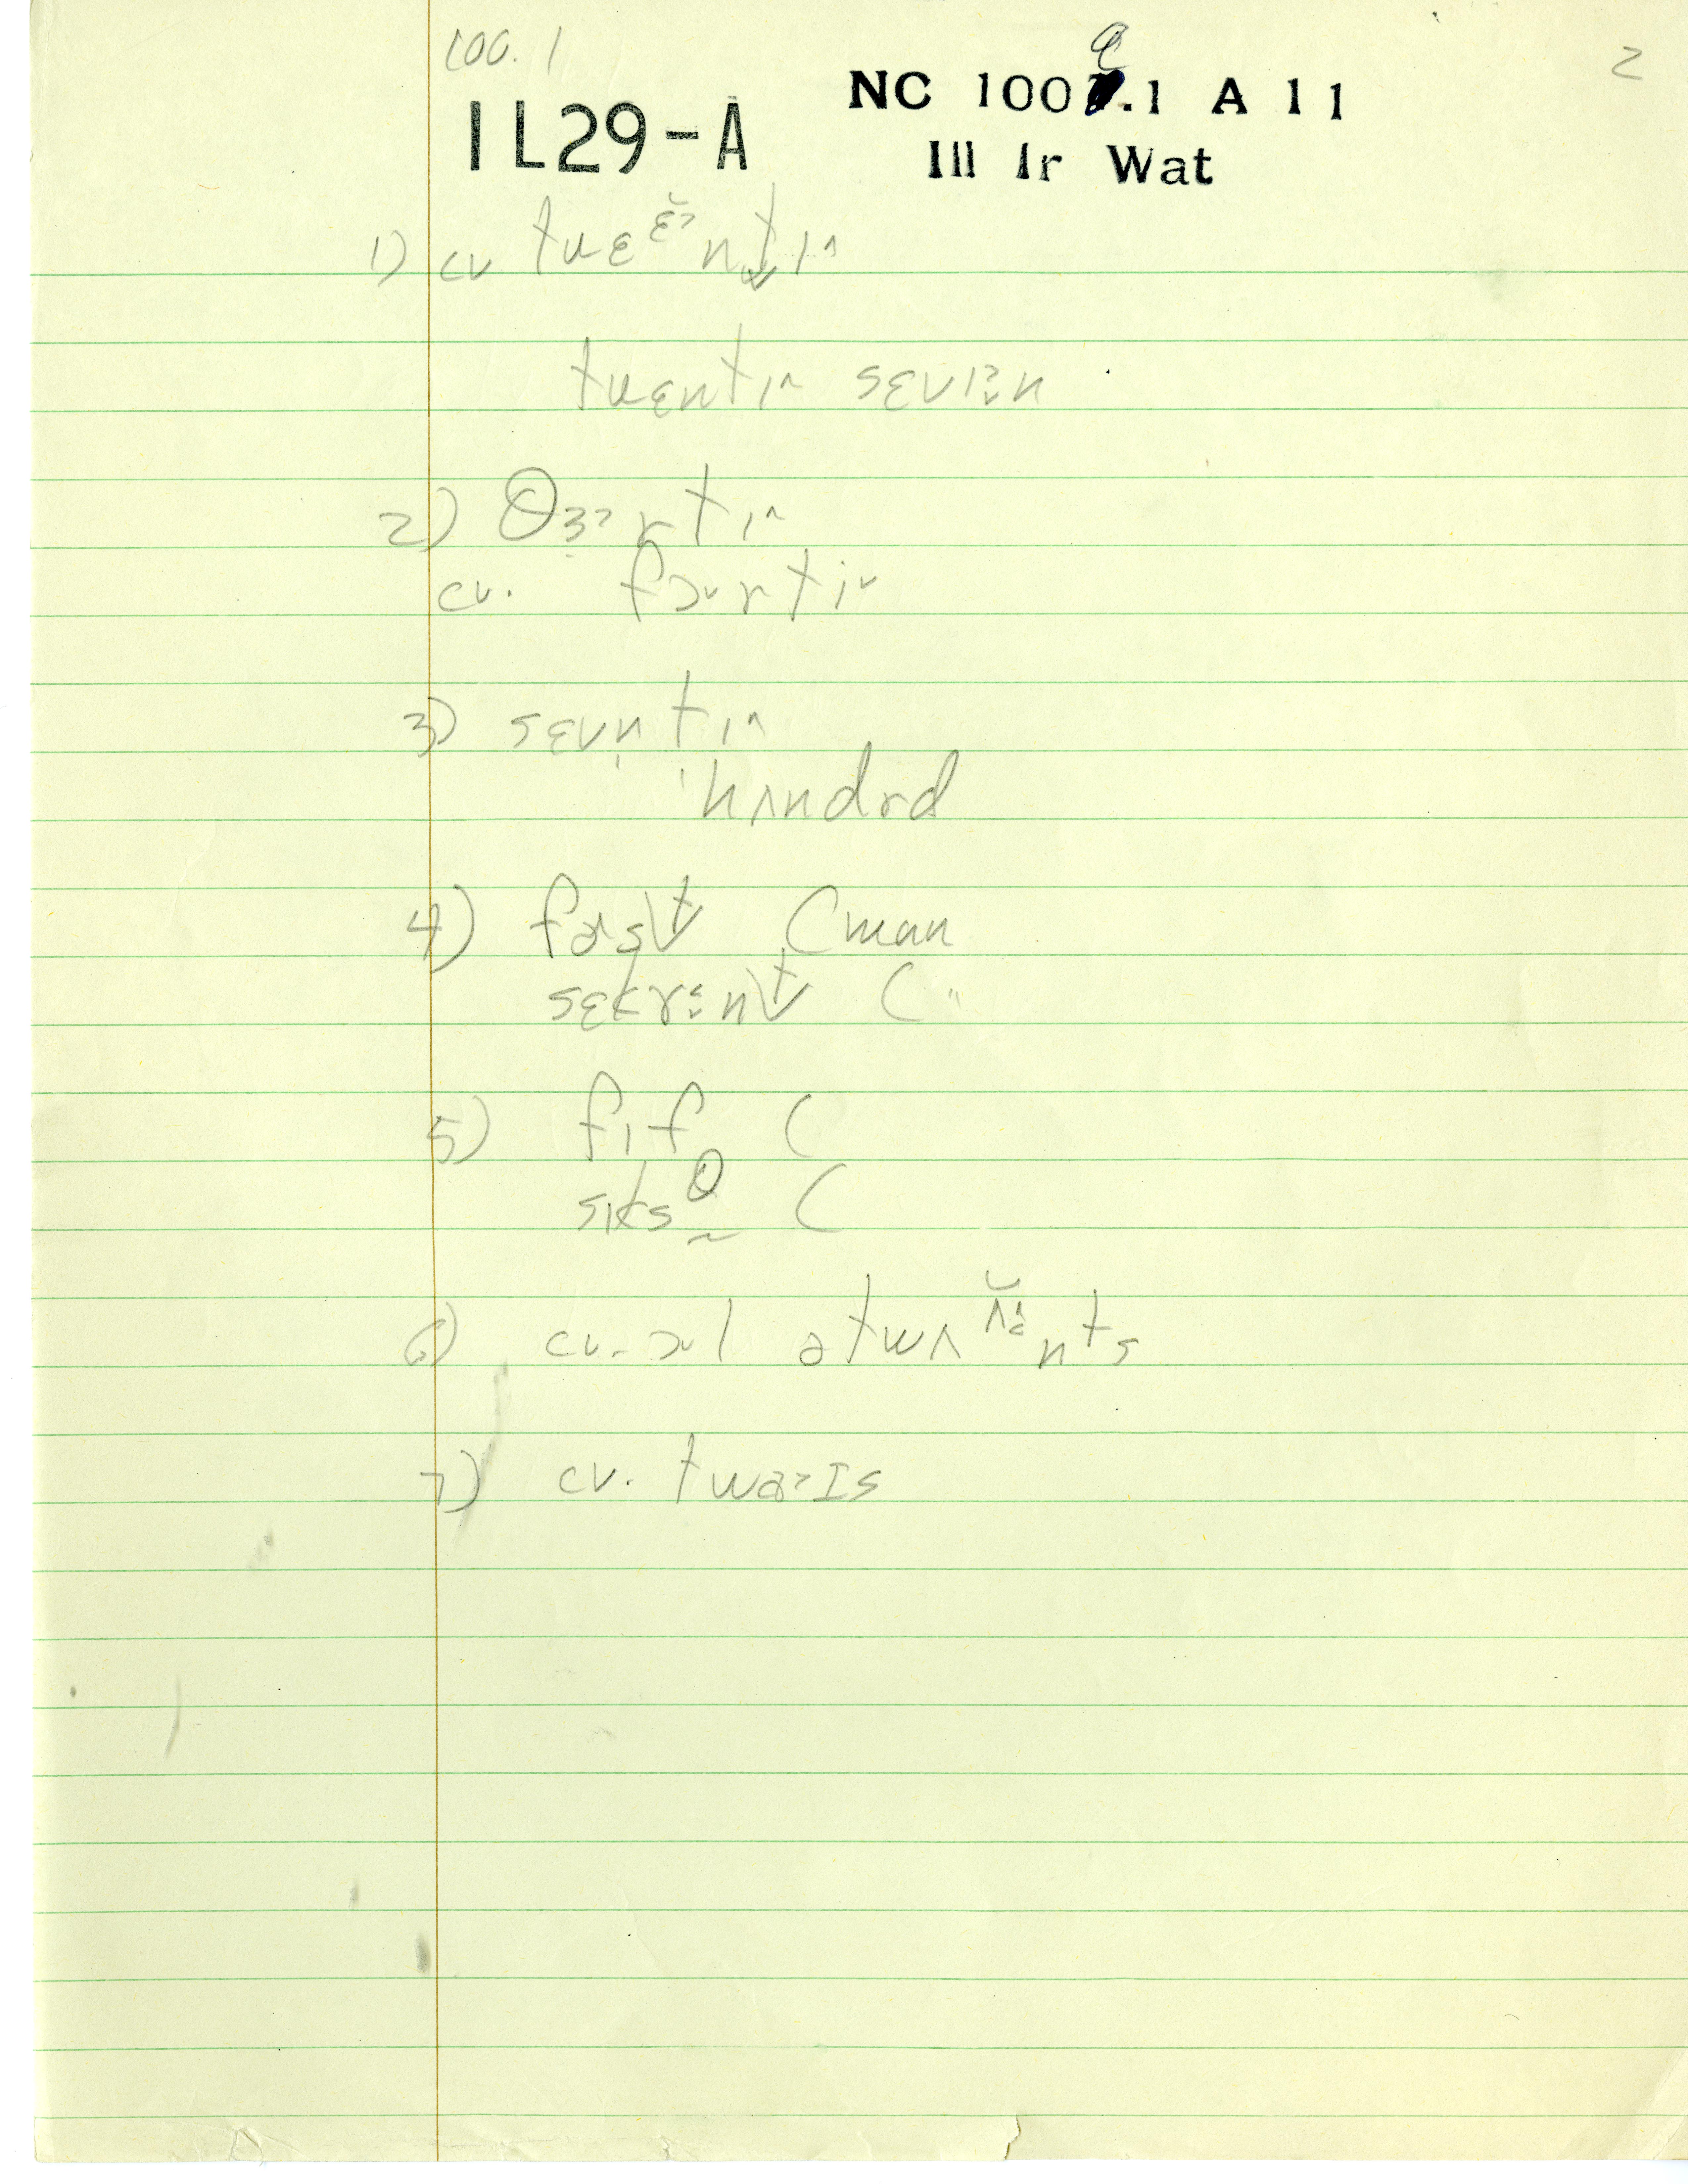 100.1
2
IL29-A
NC 100 .1 A 11
Ill Ir Wat
1) cv tuɛɛ̆˃nt̬ɪ˄
tuɛntɪ˄ sɛvɪ̵n
2) θɜ˃rtɪ˄
cv. fɔ˅rtɪ˅
3) sɛvn̩tɪ˄
ˈhʌndrd
4) fɚst (man
sɛkɤnt ( "
5) fɪf (
sɪksθ (
6) cv. ɔ˅l ətwʌ nts
7) cv. twa˃ɪs